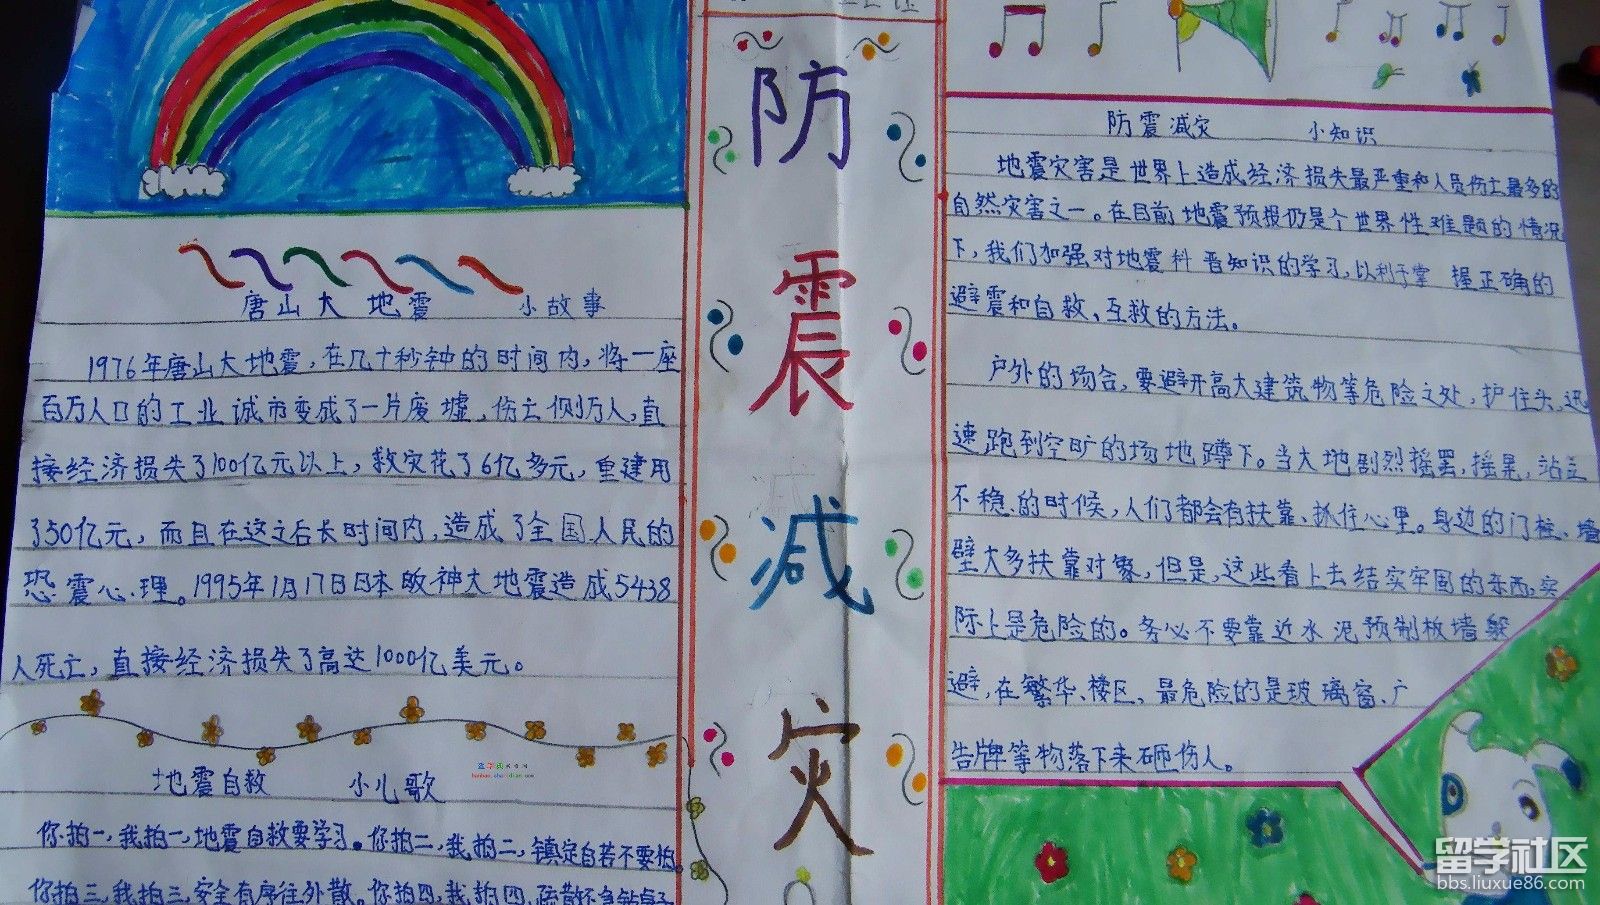 防
震
减
灾
唐山大地震 小故事
1976年唐山大地震,在几十秒钟的时间内,将一座
百万人口的工业诚市变成了一片废墟,伤亡侧万人,直
接经济损失了100亿元以上,救灾花了6亿多元,重建用
了50亿元,而且在这之后长时间内,造成了全国人民的
恐震心理。1995年1月17日日本阪神大地震造成5438
人死亡,直接经济损失了高达1000亿美元。
地震自救 小儿歌
你拍一,我拍一,地震自救要学习。你拍二,我拍二,镇定自若不要怕。
你拍三,我拍三,安全有序往外散。你拍四,我拍四,疏散不急钻桌子
防震减灾 小知识
地震灾害是世界上造成经济损失最严重和人员伤亡最多的
自然灾害之一。在目前地震预报仍是个世界性难题的情况
下,我们加强对地震科普知识的学习,以利于掌握正确的
避震和自救、互救的方法。
户外的场合,要避开高大建筑物等危险之处,护住头,迅
速跑到空旷的场地蹲下。当大地剧烈摇罢,摇晃,站立
不稳的时候,人们都会有扶靠、抓住心里。身边的门柱、墙
壁大多扶靠对象,但是,这些看上去结实牢固的东西,实
际上是危险的。务必不要靠近水泥预制板墙躲
避,在繁华、楼区,最危险的是玻璃窗、广
告牌等物落下来砸伤人。
留学社区
bbs.liuxue86.com